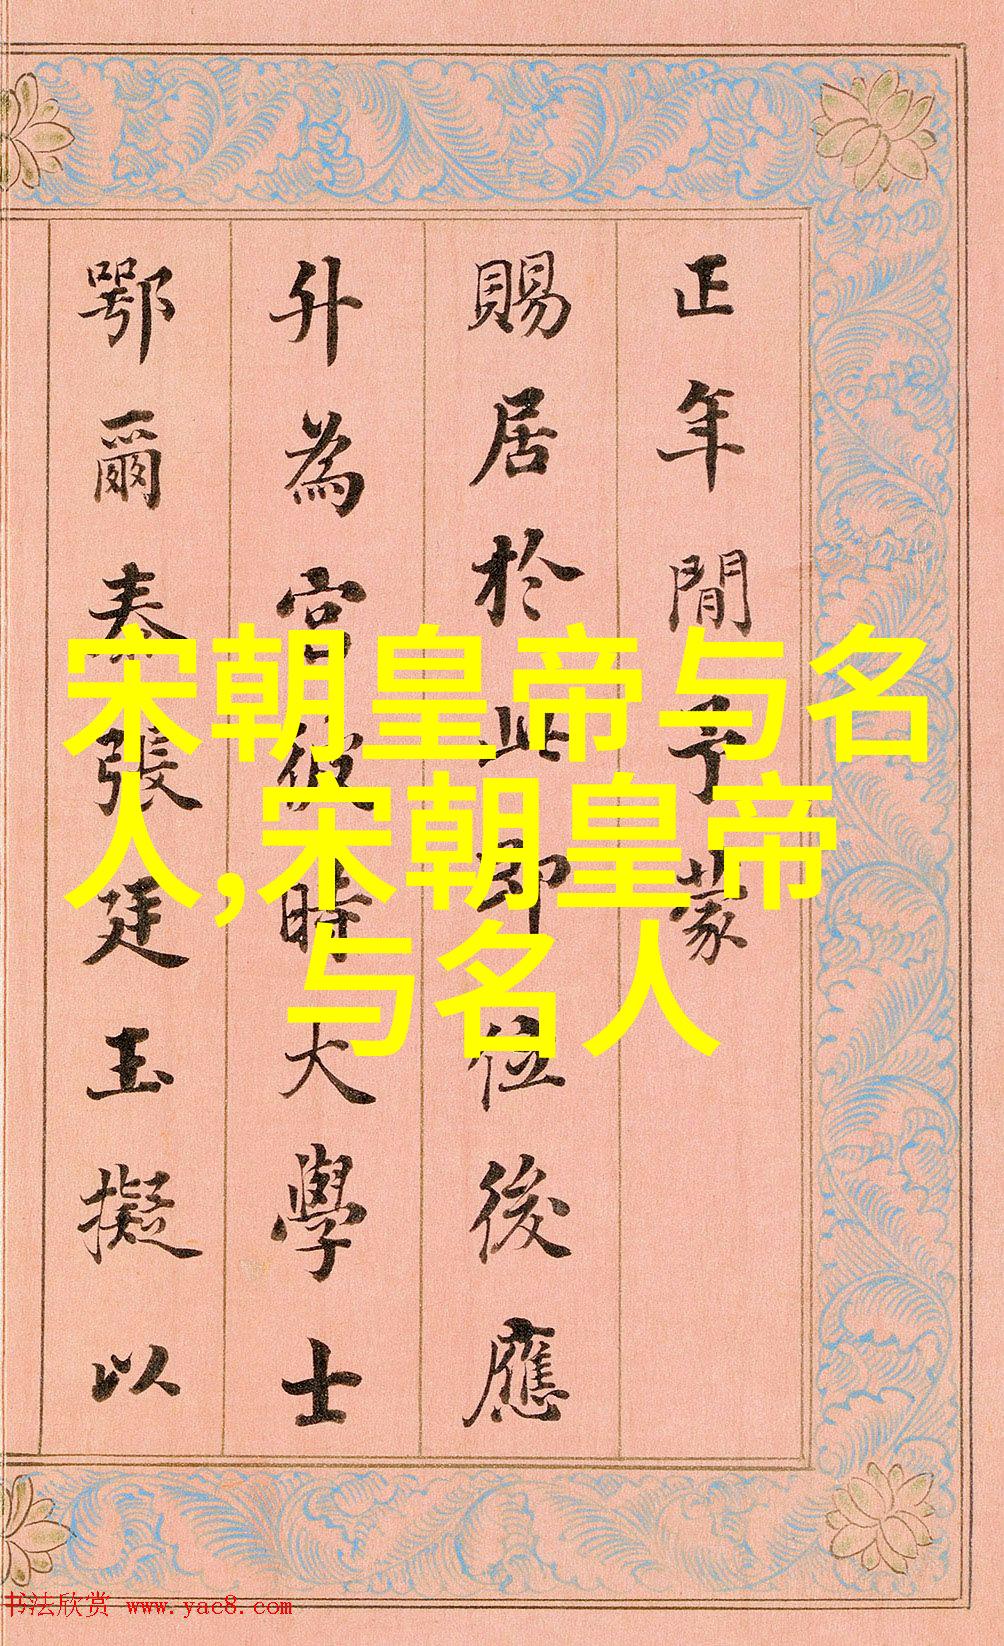 正年間予蒙
賜居於此即位後應
升為宮彼時大學士
鄂爾泰張廷玉擬以
宋朝皇帝与名
人,宋朝皇帝
与名人
书法欣赏 www.yac8.com